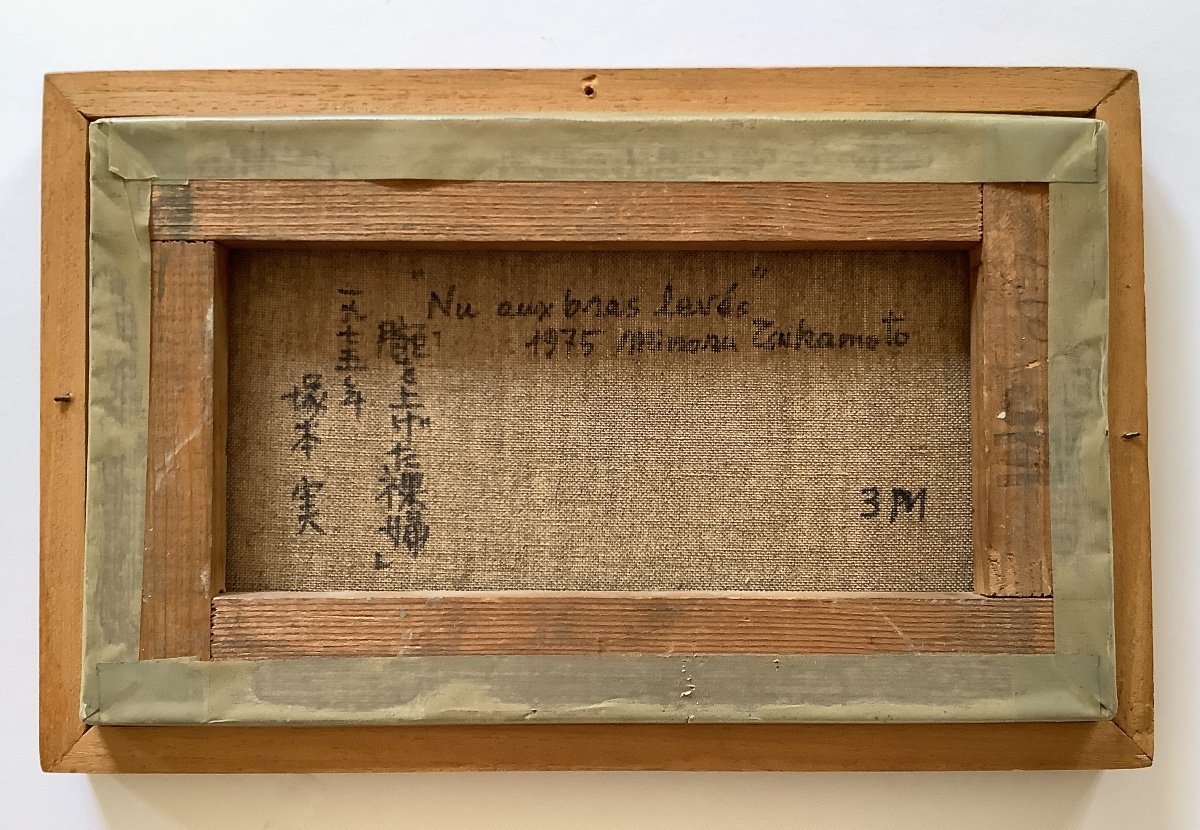 "Nu aux bras levés"
1975 Minoru Tsukamoto
「腕を上げた裸婦」
一九七五年
塚本 実
3M